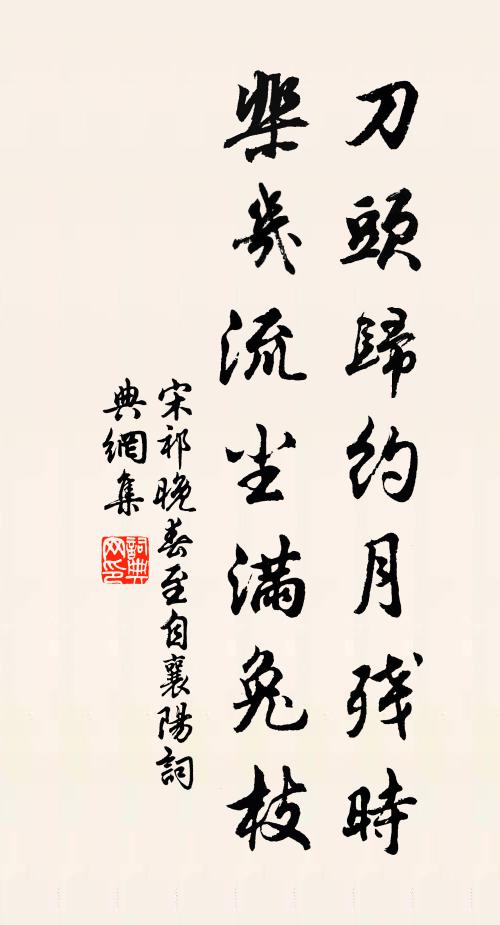 刀頭歸約月殘時
棐几流尘滿兔枝
宋祁晚春至自襄陽詞
典網集
詞典网印